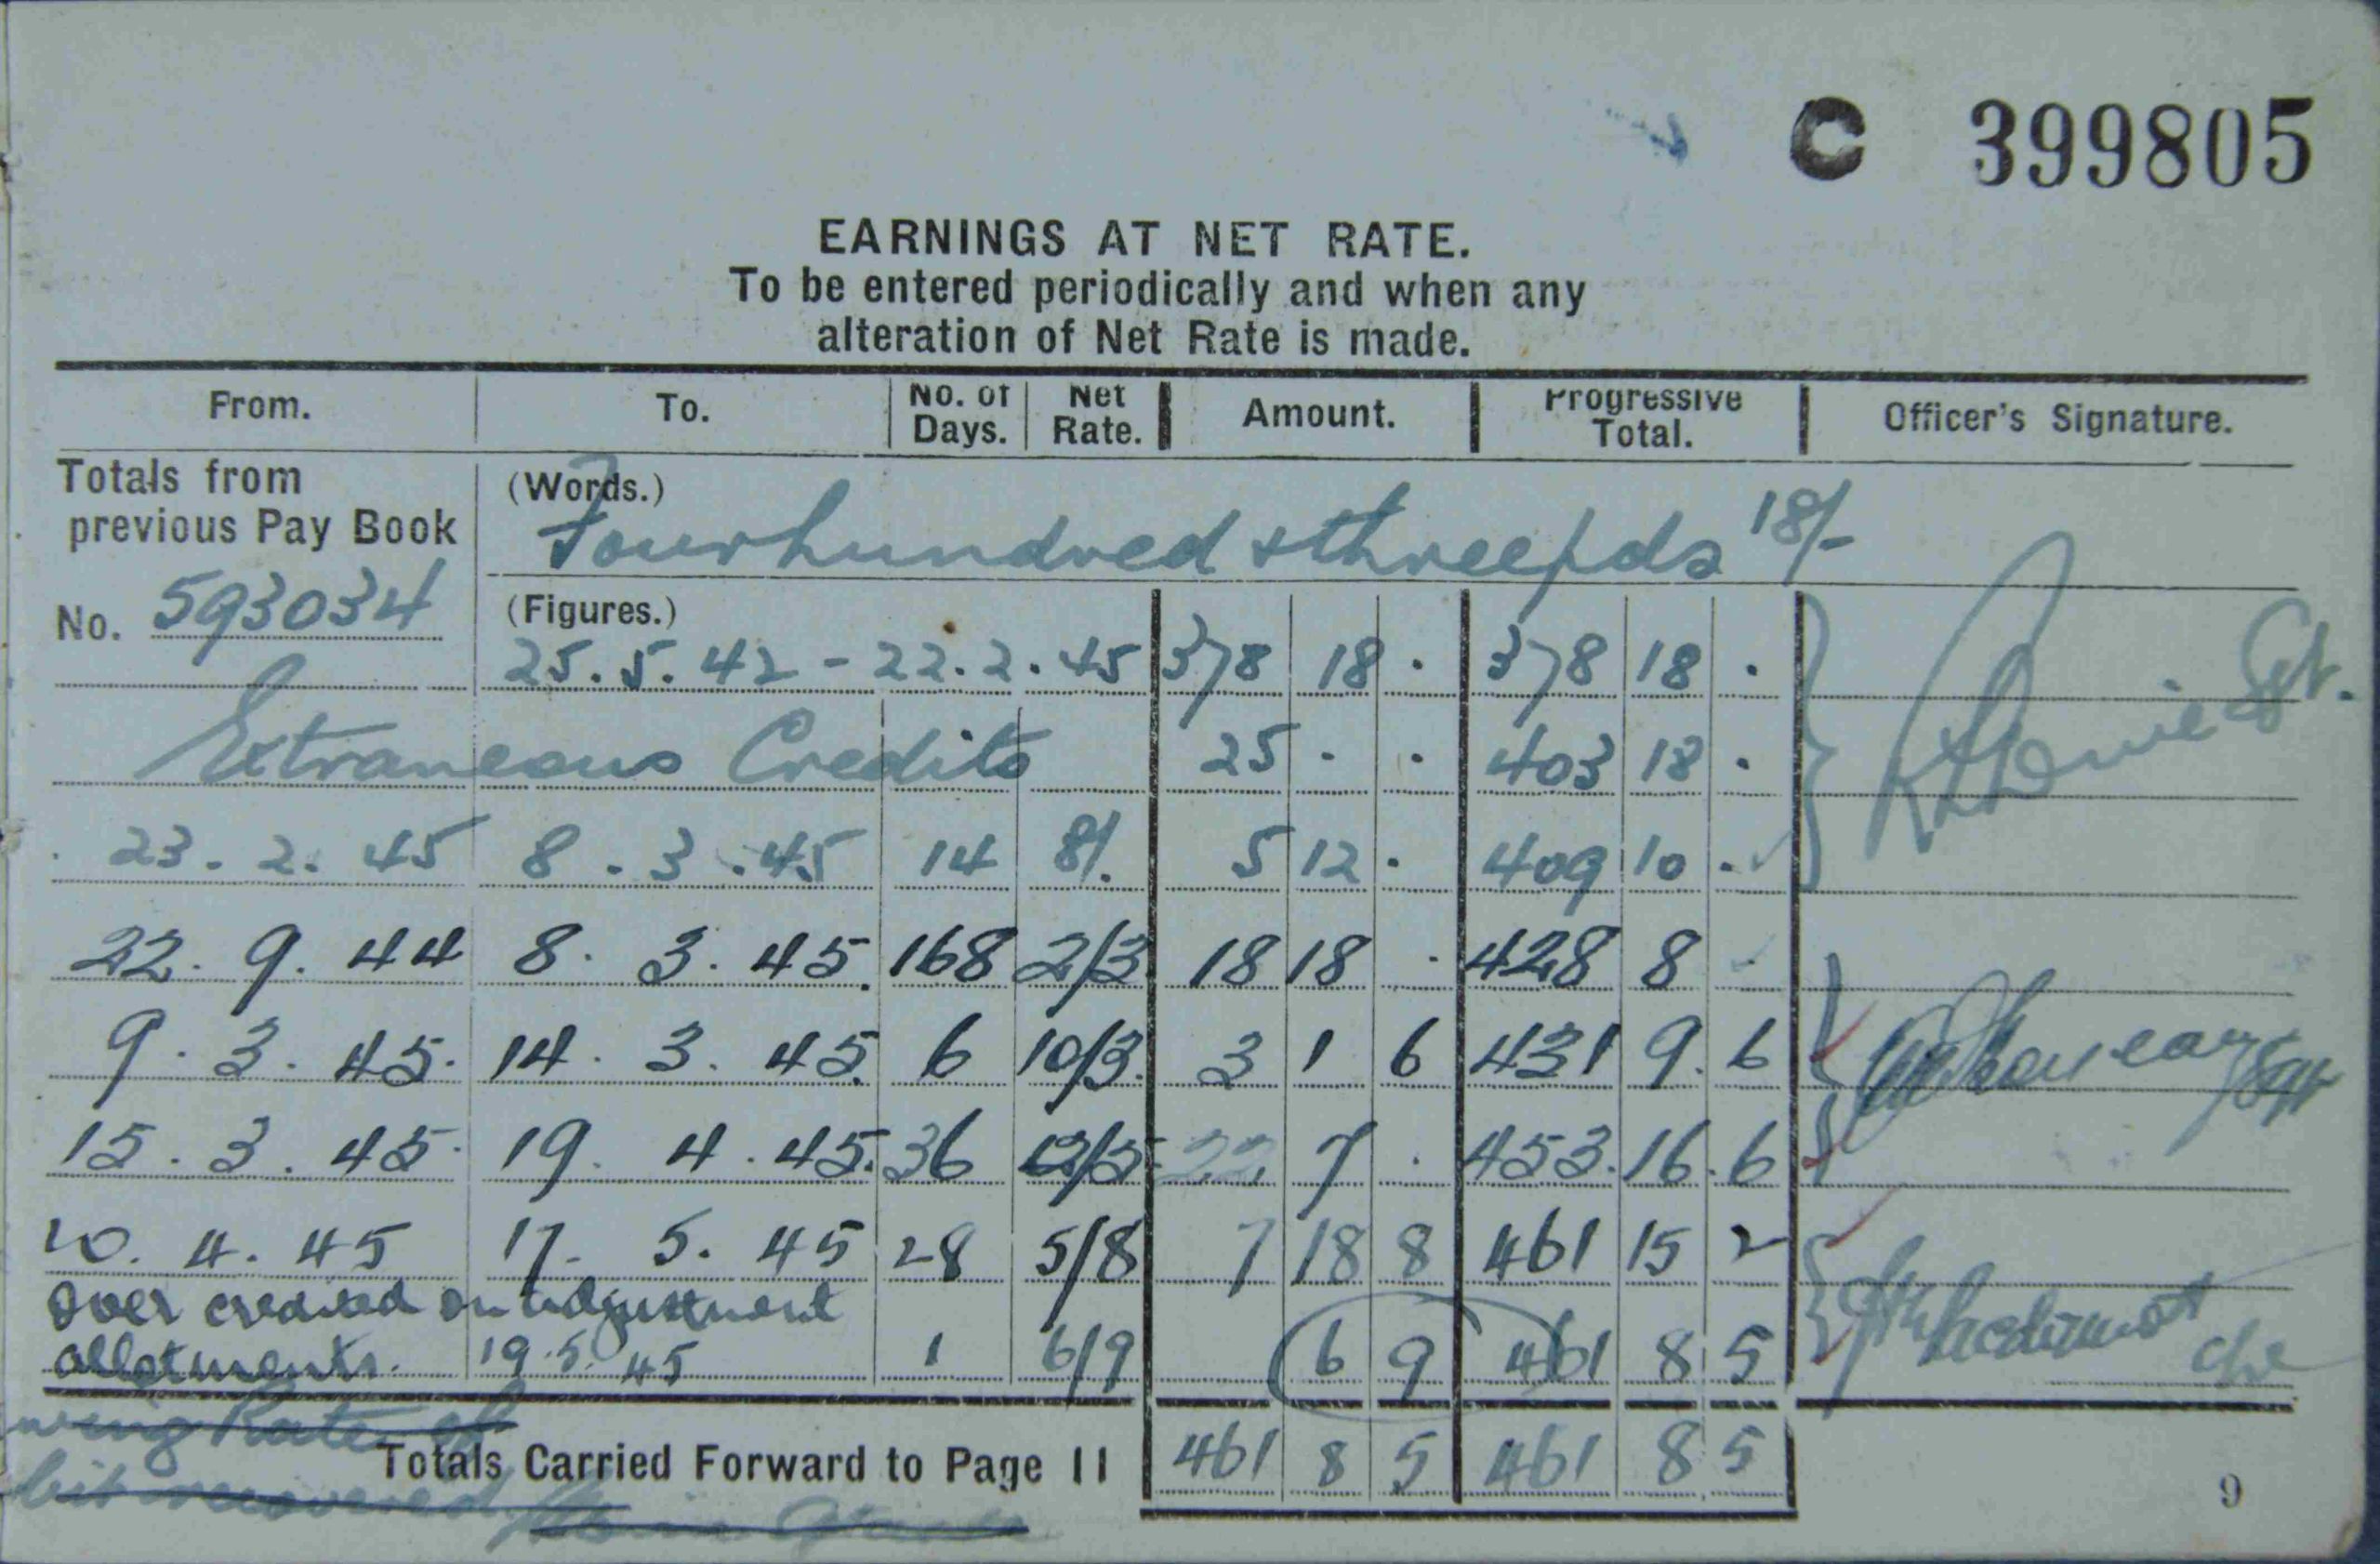 C 399805
EARNINGS AT NET RATE.
To be entered periodically and when any
alteration of Net Rate is made.
From. To. No. of Days. Net Rate. Amount. Progressive Total. Officer's Signature.
Totals from previous Pay Book (Words.) Fourhundred & three pds 18/-
No. 593034 (Figures.)
25.5.42 - 22.2.45 378 18 . 378 18 .
Extraneous Credits 25 . . 403 18 .
23.2.45 8.3.45 14 8/. 5 12 . 409 10 .
22.9.44 8.3.45. 168 2/3 18 18 . 428 8 -
9.3.45. 14.3.45. 6 10/3. 3 1 6 431 9.6
15.3.45. 19.4.45. 36 22 7 . 453.16.6
20.4.45 17.5.45 28 5/8 7 18 8 461 15 2
Over credited on adjustment
allotments. 19.5.45 1 6/9 6 9 461 8 5
Rate of
Totals Carried Forward to Page 11 461 8 5 461 8 5
recovered
9